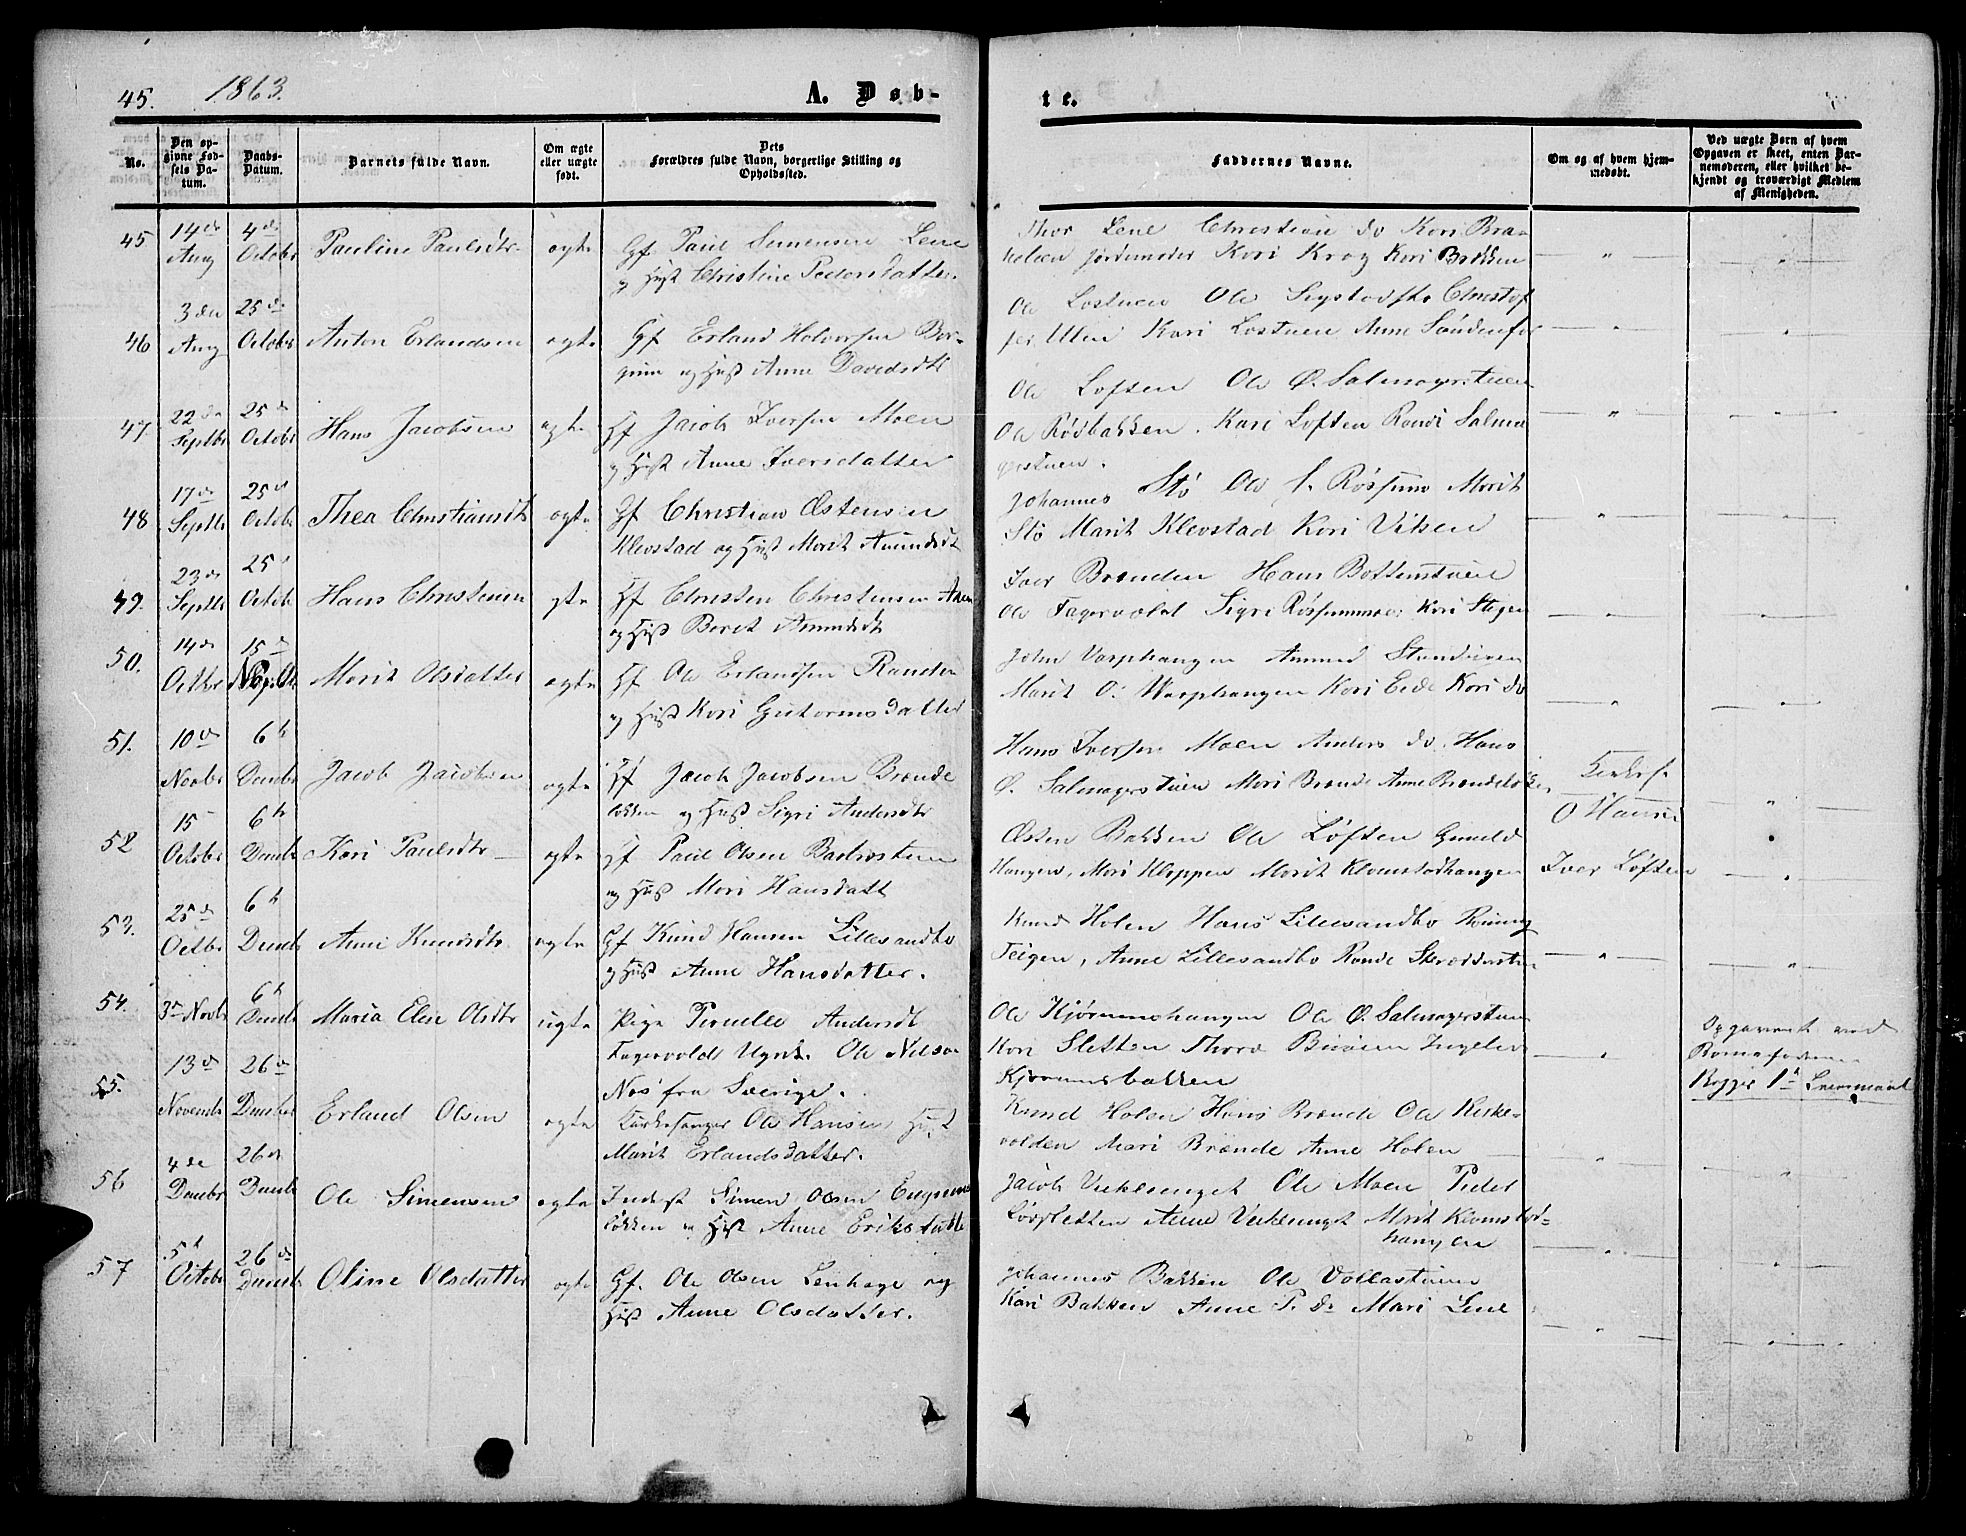 45. 1863. A. Døb-
te.
No.
Den op-
givne Fød-
sels Da-
tum.
Daabs-
Datum.
Barnets fulde Navn.
Om ægte
eller uægte
født.
Dets
Forældres fulde Navn, borgerlige Stilling og
Opholdssted.
Faddernes Navne.
Om og af hvem hjem-
medøbt.
Ved uægte Børn af hvem
Opgaven er skeet, enten Bar-
nemoderen, eller hvilket be-
kjendt og troværdigt Medlem
af Menigheden.
45 14de Aug 4de Octobr Pauline Paulsdtr ægte Gf Paul Simensen Lene
og Hust Christine Pedersdatter.
Thor Lene Christian do Kari Bra-
kelien Jordemoder Kari Krog Kari Bakken
46 3den Aug 25de Octobr Anton Erlandsen ægte Gf Erland Halvorsen Bor-
gum og Hust Anne Davidsdtr
Ole Lostuen Ole Christof
fer Ulen Kari Lostuen Anne
47 22de Septbr 25de Octobr Hans Jacobsen ægte Gf Jacob Iversen Moen
og Hust Anne Iversdatter
Ole Løften Ole Ø. Salmagerstuen
Ole Rødbakken. Kari Løften Rondi Salma
gerstuen.
48 17de Septbr 25de Octobr Thea Christiansdtr ægte Gf Christian Østensen
Klevstad og Hust Marit Amundsdt
Johannes Stö Ole Røssum Marit
Stö Marit Klevstad Kari Viken
49. 23de Septbr 25de Octobr Hans Christensen ægte Gf Christen Christensen
og Hust Beret Amundsdt
Iver Brænden Hans Bottenstuen
Ole Fagervold Sigri Kari Stegen
50. 14de Octbr 15de Marit Olsdatter ægte Gf Ole Erlandsen Randen
og Hust Kari Guttormsdatter
John Varphaugen Amund
Marit O. Varphaugen Kari Eide Kari do
51. 10de Novbr 6te Decbr Jacob Jacobsen ægte Gf Jacob Jacobsen Brænde
løkken og Hust Sigri Andersdtr
Hans Iversen Moen Anders do. Hans
Ø. Salmagerstuen Mari Brænde Anne Brændeløkken
Kirkes.
O Hansen
52 15 Octobr 6te Decbr Kari Paulsdtr ægte Gf Paul Olsen
og Hust Mari Hansdatt
Østen Bakken Ole Løften
Haugen, Mari Kloppen Marit Klevstadhaugen
Iver Løften
53. 25de Octbr 6te Decbr Anne Knudsdtr ægte Gf Knud Hansen Lillesandbo
og Hust Anne Hansdatter.
Knud Holen Hans Lillesandbo
Teigen, Anne Lillesandbo Ronde
54. 3de Novbr 6te Decbr Maria Eline Olsdtr uægte Pige Pernille Andersdt
Fagervold Ugift. Ole Nilsen
Nos fra Sverige.
Ole Kjørumshaugen Ole Ø. Salmagerstuen
Kari Sletten Thore
Kjørumsbakken
Opgavent ved
Barnefaderen
Begges 1ste Leiermaal
55. 13de Novembr 26de Decbr Erland Olsen ægte Kirkesanger Ole Hansen Hust
Marit Erlandsdatter.
Knud Holen Hans Brænde Ole Kirke-
volden Mari Brænde Anne Holen
56 4de Decbr 26de Decbr Ole Simensen ægte Inderst Simen Olsen
løkken og Hust Anne Eriksdatter
Jacob Ole Moen Peder
Anne Marit Klevstad-
haugen
57 5te Octobr 26de Decbr Oline Olsdatter ægte Gf. Ole Olsen Lenhage og
Hust Anne Olsdatter.
Johannes Bakken Ole Vollastuen
Kari Bakken Anne P. do Mari Lene